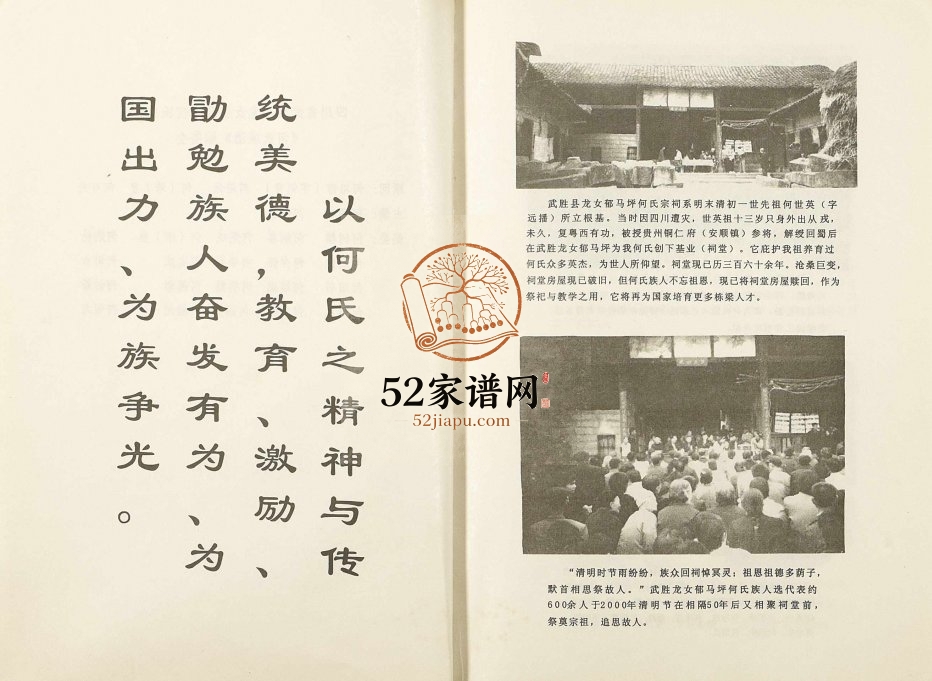 以何氏之精神与传
统美德，教育、激励、
勖勉族人奋发有为、为
国出力、为族争光。
武胜县龙女郁马坪何氏宗祠系明末清初一世先祖何世英（字
远播）所立根基。当时因四川遭灾，世英祖十三岁只身外出从戎，
未久，复粤西有功，被授贵州铜仁府（安顺镇）参将，解绶回蜀后
在武胜龙女郁马坪为我何氏创下基业（祠堂）。它庇护我祖养育过
何氏众多英杰，为世人所仰望。祠堂现已历三百六十余年。沧桑巨变，
祠堂房屋现已破旧，但何氏族人不忘祖恩，现已将祠堂房屋赎回，作为
祭祀与教学之用，它将再为国家培育更多栋梁人才。
52家谱网
52jiapu.com
“清明时节雨纷纷，族众回祠悼冥灵；祖恩祖德多荫子，
默首相思祭故人。”武胜龙女郁马坪何氏族人选代表约
600余人于2000年清明节在相隔50年后又相聚祠堂前，
祭奠宗祖，追思故人。